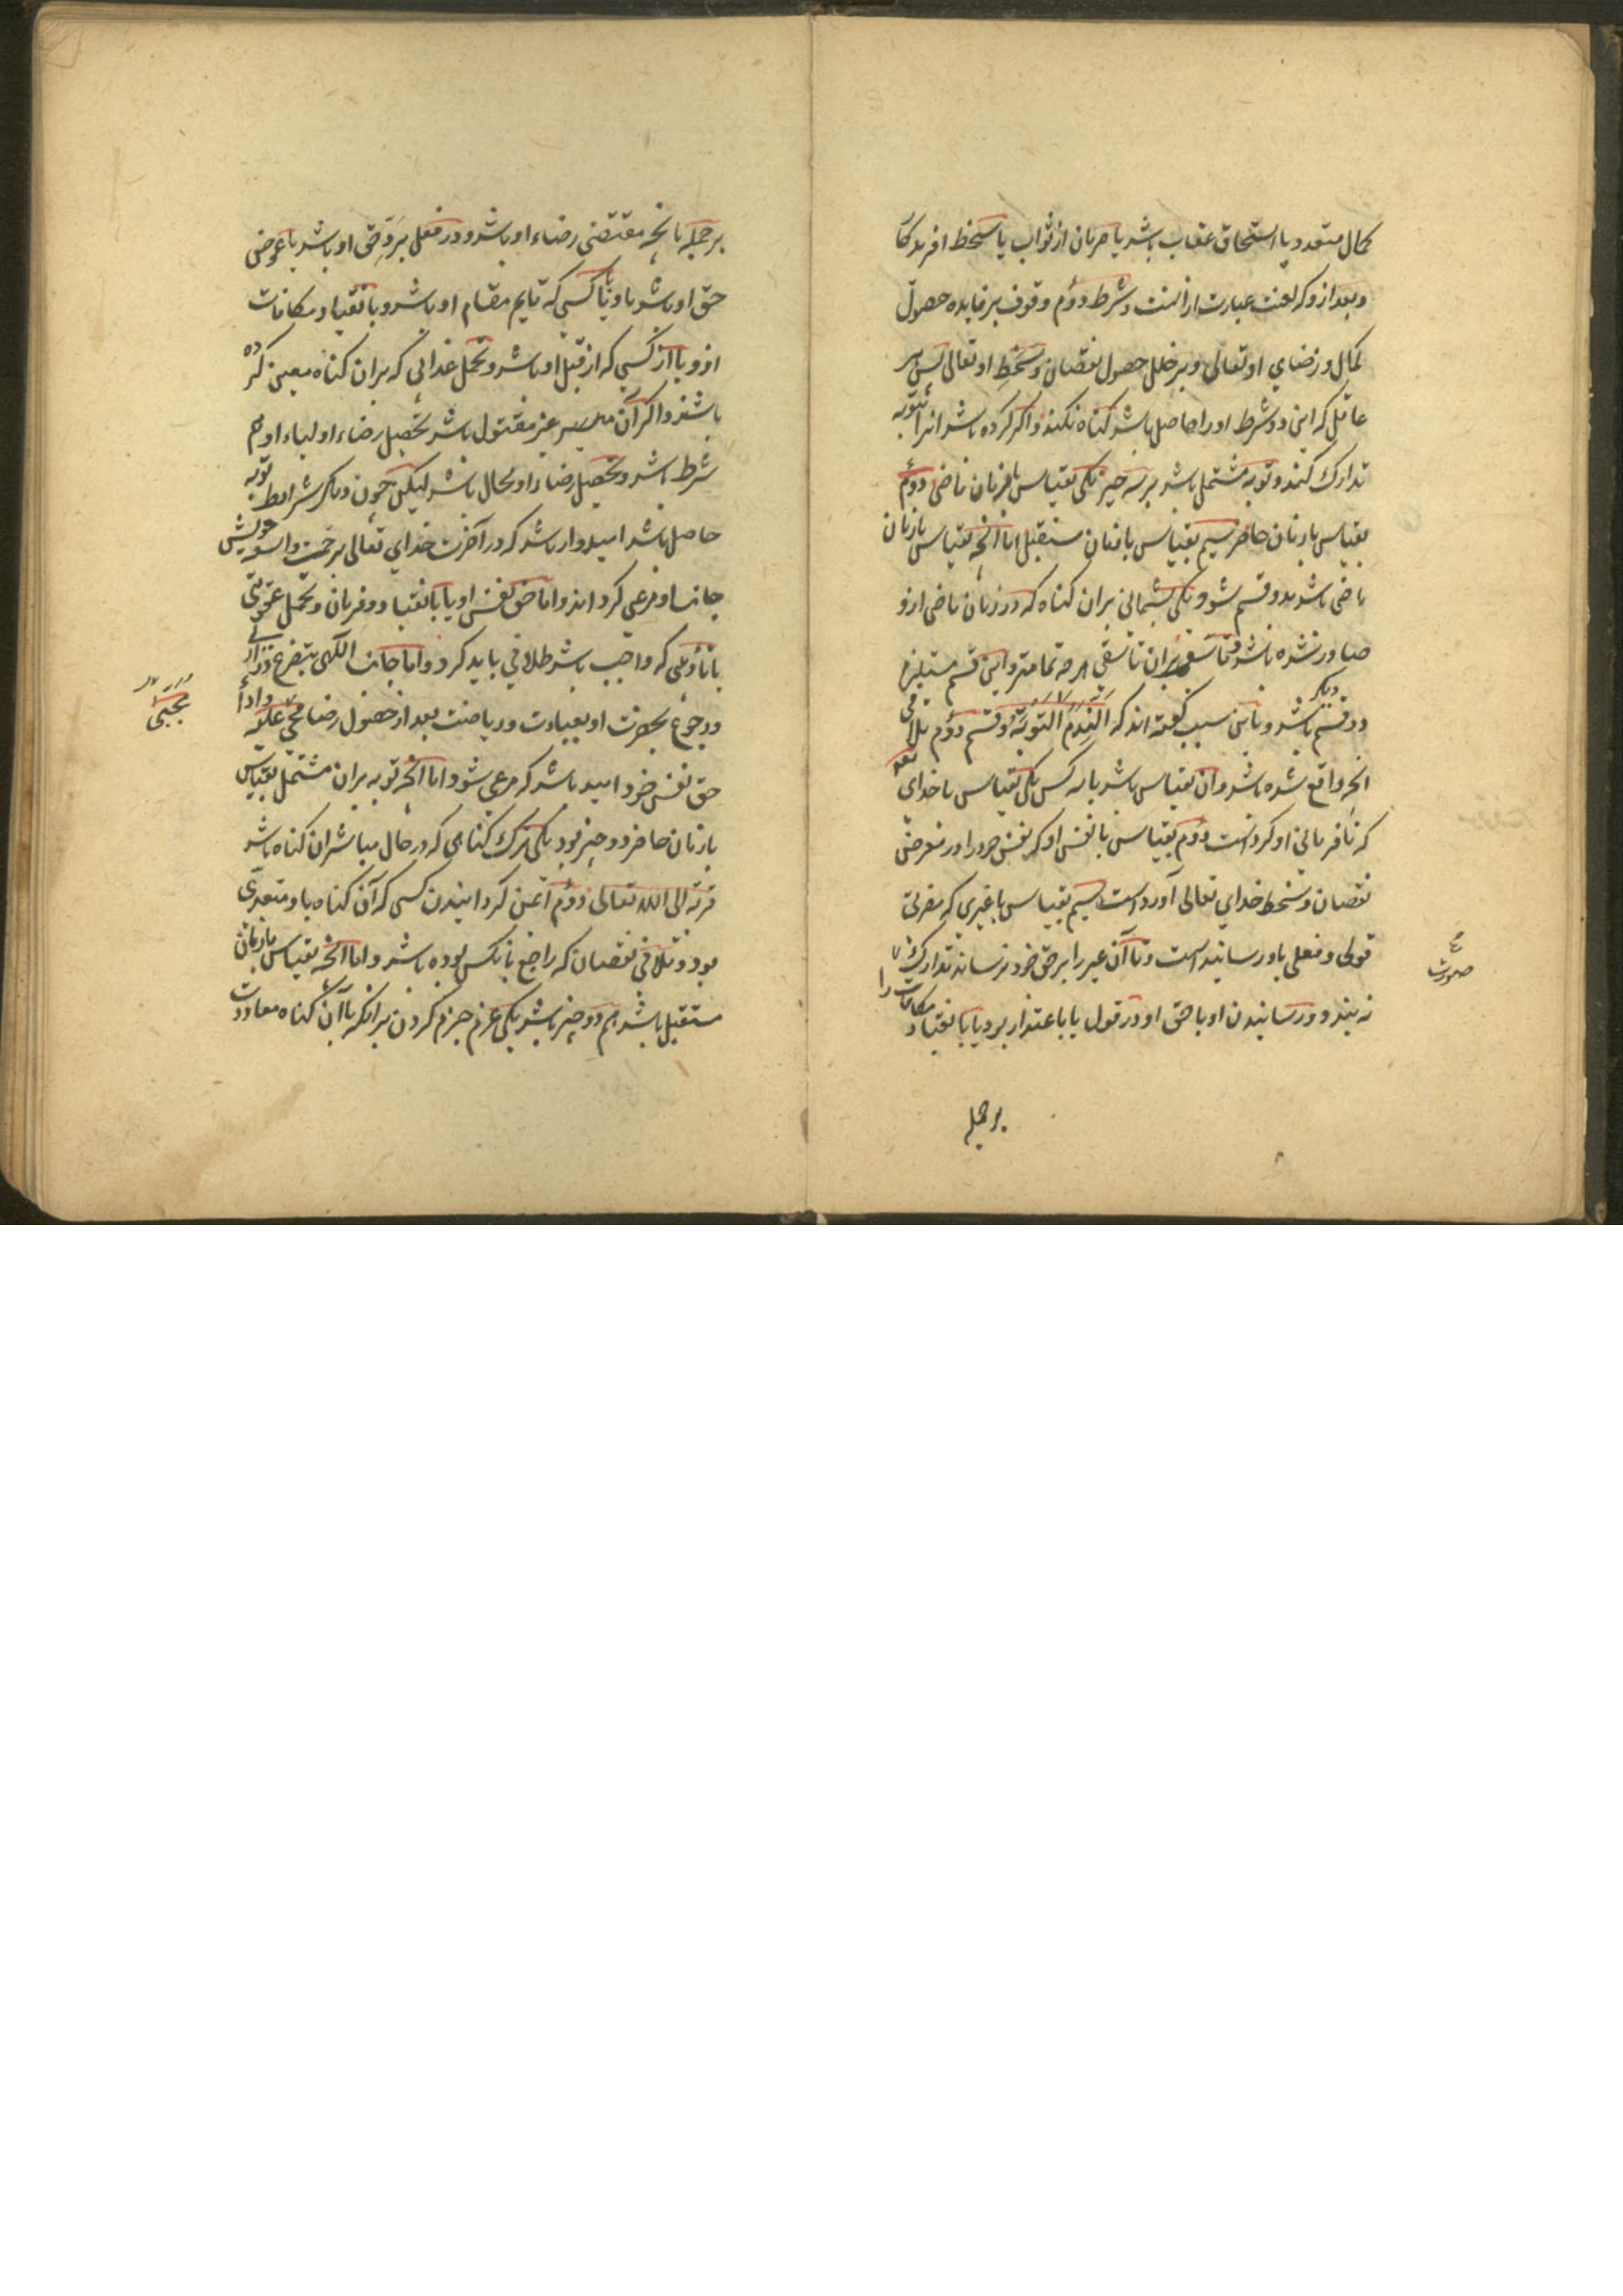 کمال متعدد یا استحقاق عقاب باشد یا حرمان از ثواب یا سخط افریدکار
و بعد ازو که لعنت عبارت از آنست و شرط دوم وقوف بر فایده حصول
کمال و رضای او تعالی و بر خلل حصول نقصان و سخط او تعالی پس هر
عاقل که این دو شرط او را حاصل باشد کناه نکند و اکر کرده باشد انرا بتوبه
تدارک کند و توبه مشتمل باشد بر سه چیز یکی بقیاس با زمان ماضی دوم
بقیاس با زمان حاضر سیم بقیاس با زمان مستقبل اما انچه بقیاس با زمان
ماضی باشد بدو قسم شود یکی پشیمانی بران کناه که در زمان ماضی ازو
صادر شده باشد و تاسف بران تاسفی هر چه تمامتر و این قسم مستلزم
دو قسم دیکر باشد و باین سبب کفته اند که النَدَمُ التَوبَةُ و قسم دوم تلافی
انچه واقع شده باشد و آن بقیاس باشد با سه کس یکی بقیاس با خدای تعالی
که نافرمانی او کرده است دوم بقیاس با نفس او که نفس خود را در معرض
نقصان و سخط خدای تعالی آورده است سیم بقیاس با غیری که مضرتی
قولی و فعلی باو رسانیده است و تا آن غیر را بر حق خود نرساند تدارک
صورت
نه بندد و رسانیدن او با حق او در قول یا باعتذار بود یا بانقیاد مکافات را
بر جمله
بر جمله بانچه مقتضی رضاء او باشد و در فعل برد حق او باشد یا عوض
حق او باشد باو یا با کسی که قایم مقام او باشد و بانقیاد مکافات
ازو یا از کسی که از قبل او باشد و تحمل عذابی که بران کناه معین کرده
باشند و اکر آن غیر مقتول باشد تحصیل رضاء اولیاء او هم
شرط باشد و تحصیل رضاء او محال باشد لیکن چون دیکر شرایط توبه
حاصل باشد امیدوار باشد که در آخرت خدای تعالی برحمت واسعه خویش
جانب او مرعی کرداند و اما حق نفس او یا بانقیاد و فرمان و تحمل عقوبتی
با تأوبلی که واجب باشد طلافی باید کرد و اما جانب الهی بتضرع و زاری
و رجوع بحضرت او بعبادت و ریاضت بعد از حصول رضا مجنی علیه و اداء
یَجِبُ
حق نفس خود امید باشد که مرعی شود اما انچه توبه بران مشتمل بقیاس
با زمان حاضر دو چیز بود یکی ترک کناهی که در حال مباشر ان کناه باشد
قربة الی الله تعالی دوم ایمن کردانیدن کسی که آن کناه باو متعدی
بود و تلافی نقصان که راجع بانکس بوده باشد و اما انچه بقیاس با زمان
مستقبل باشد هم دو چیز باشد یکی عزم جزم کردن برانکه با آن کناه معاودت